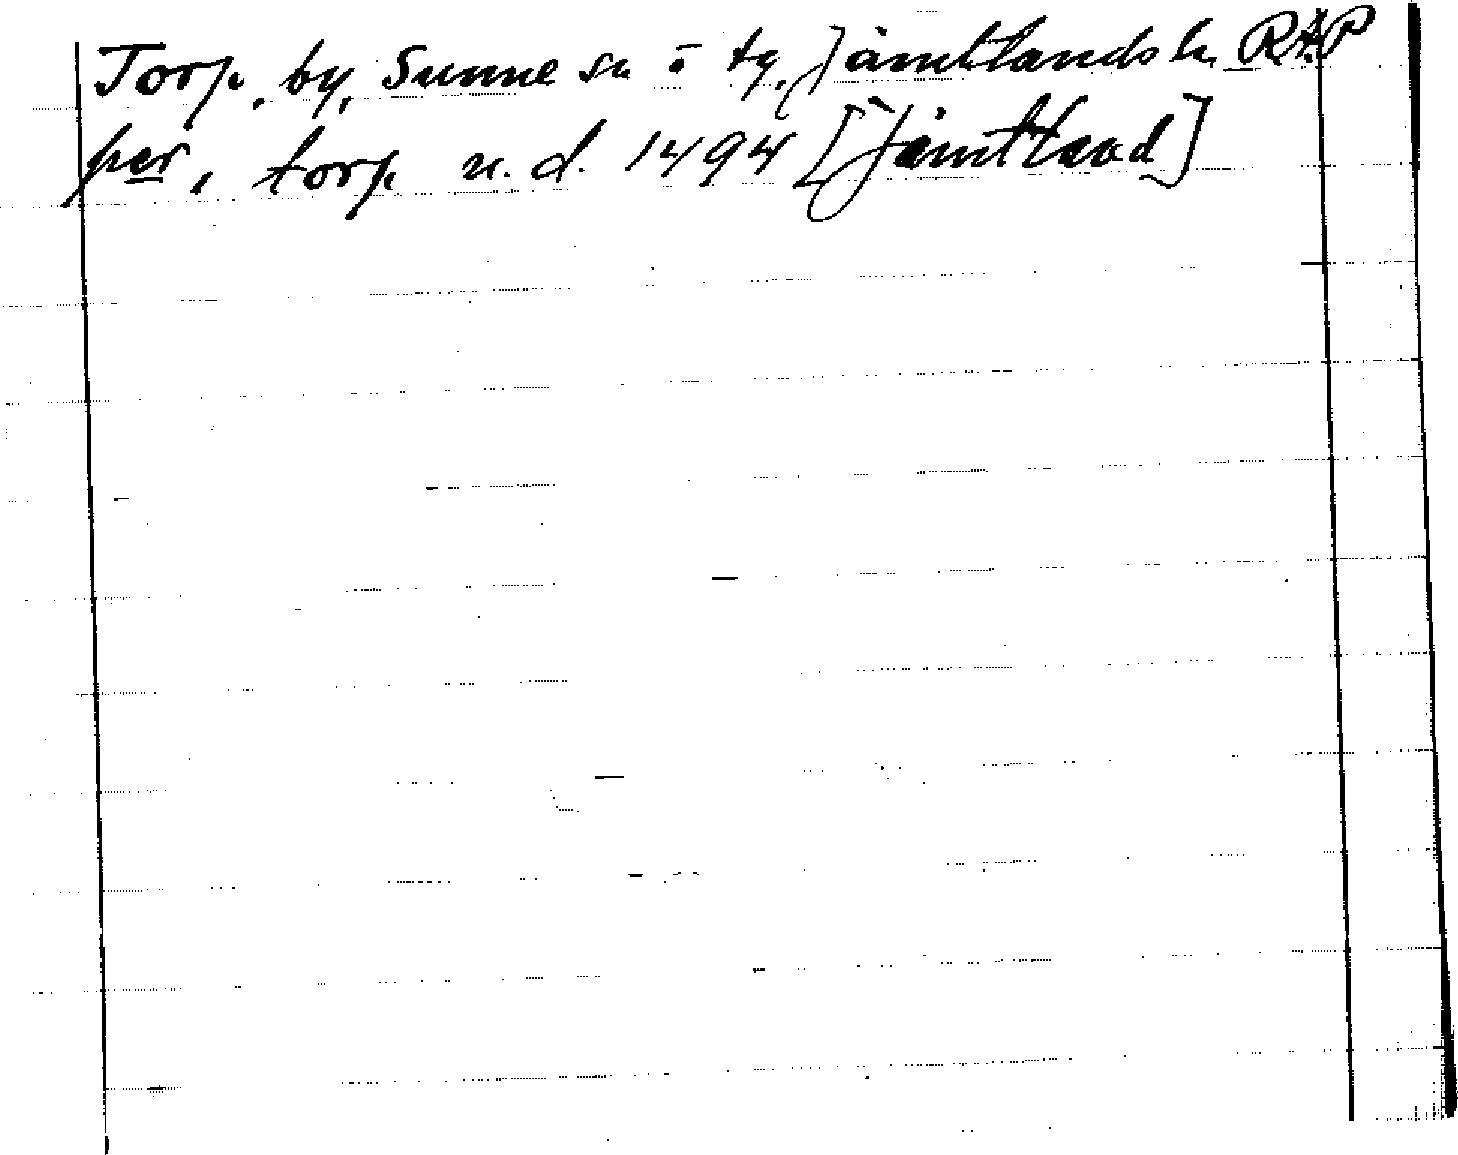 Torp, by, Sunne sn o tg, Jämtlands l. RAP
per, torp u. d. 1494 [Jämtland]